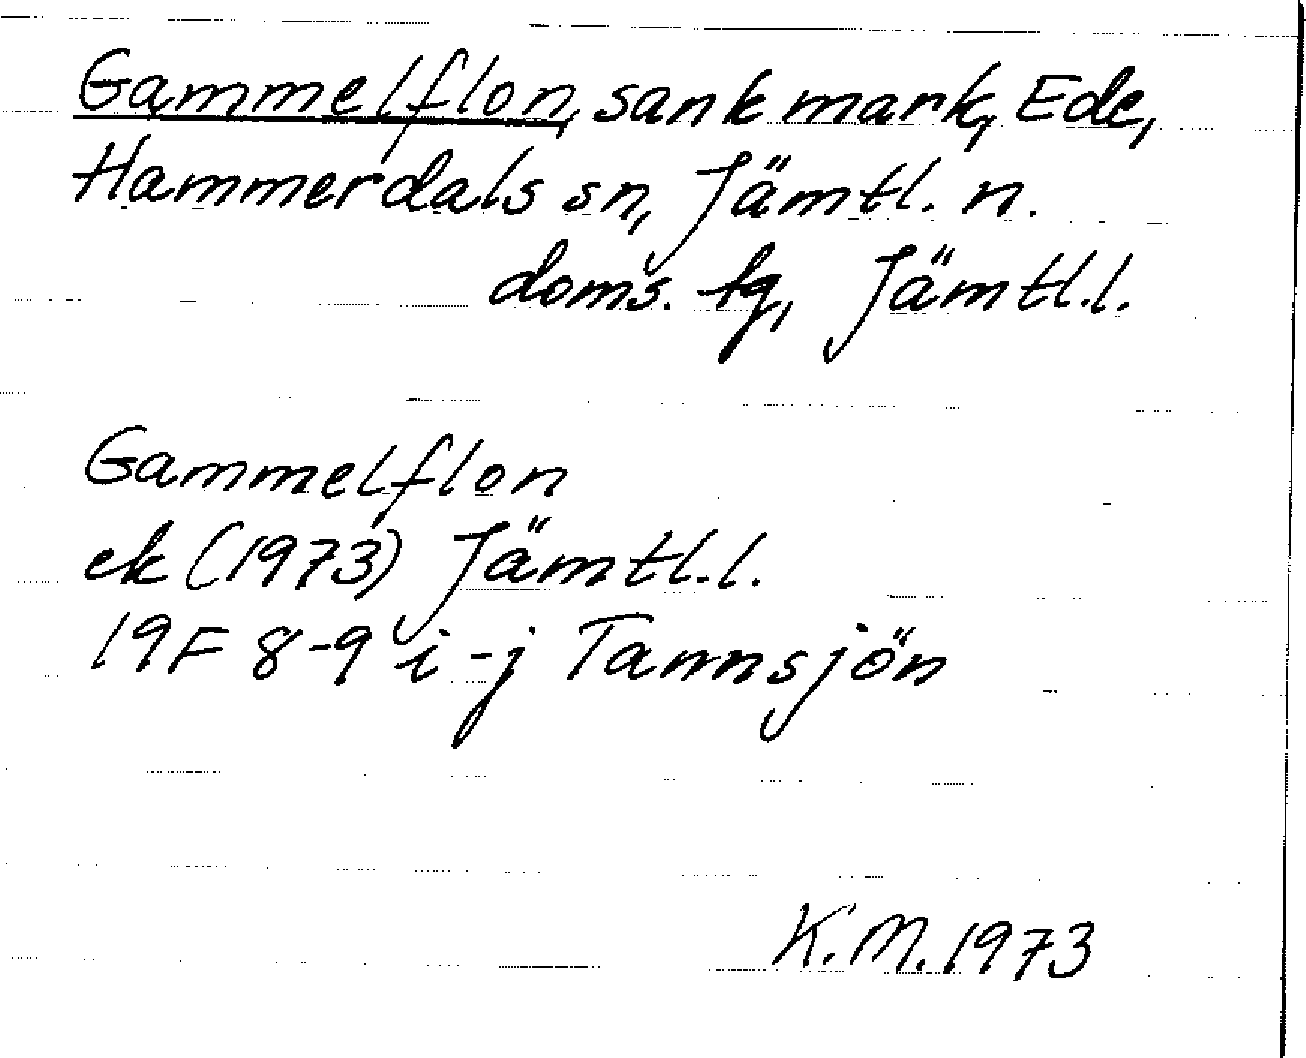 Gammelflon, sank mark, Ede,
Hammerdals sn, Jämtl. n.
doms. fg, Jämtl.l.
Gammelflon
ek (1973) Jämtl.l.
19F 8-9 i-j Tannsjön
K.M. 1973